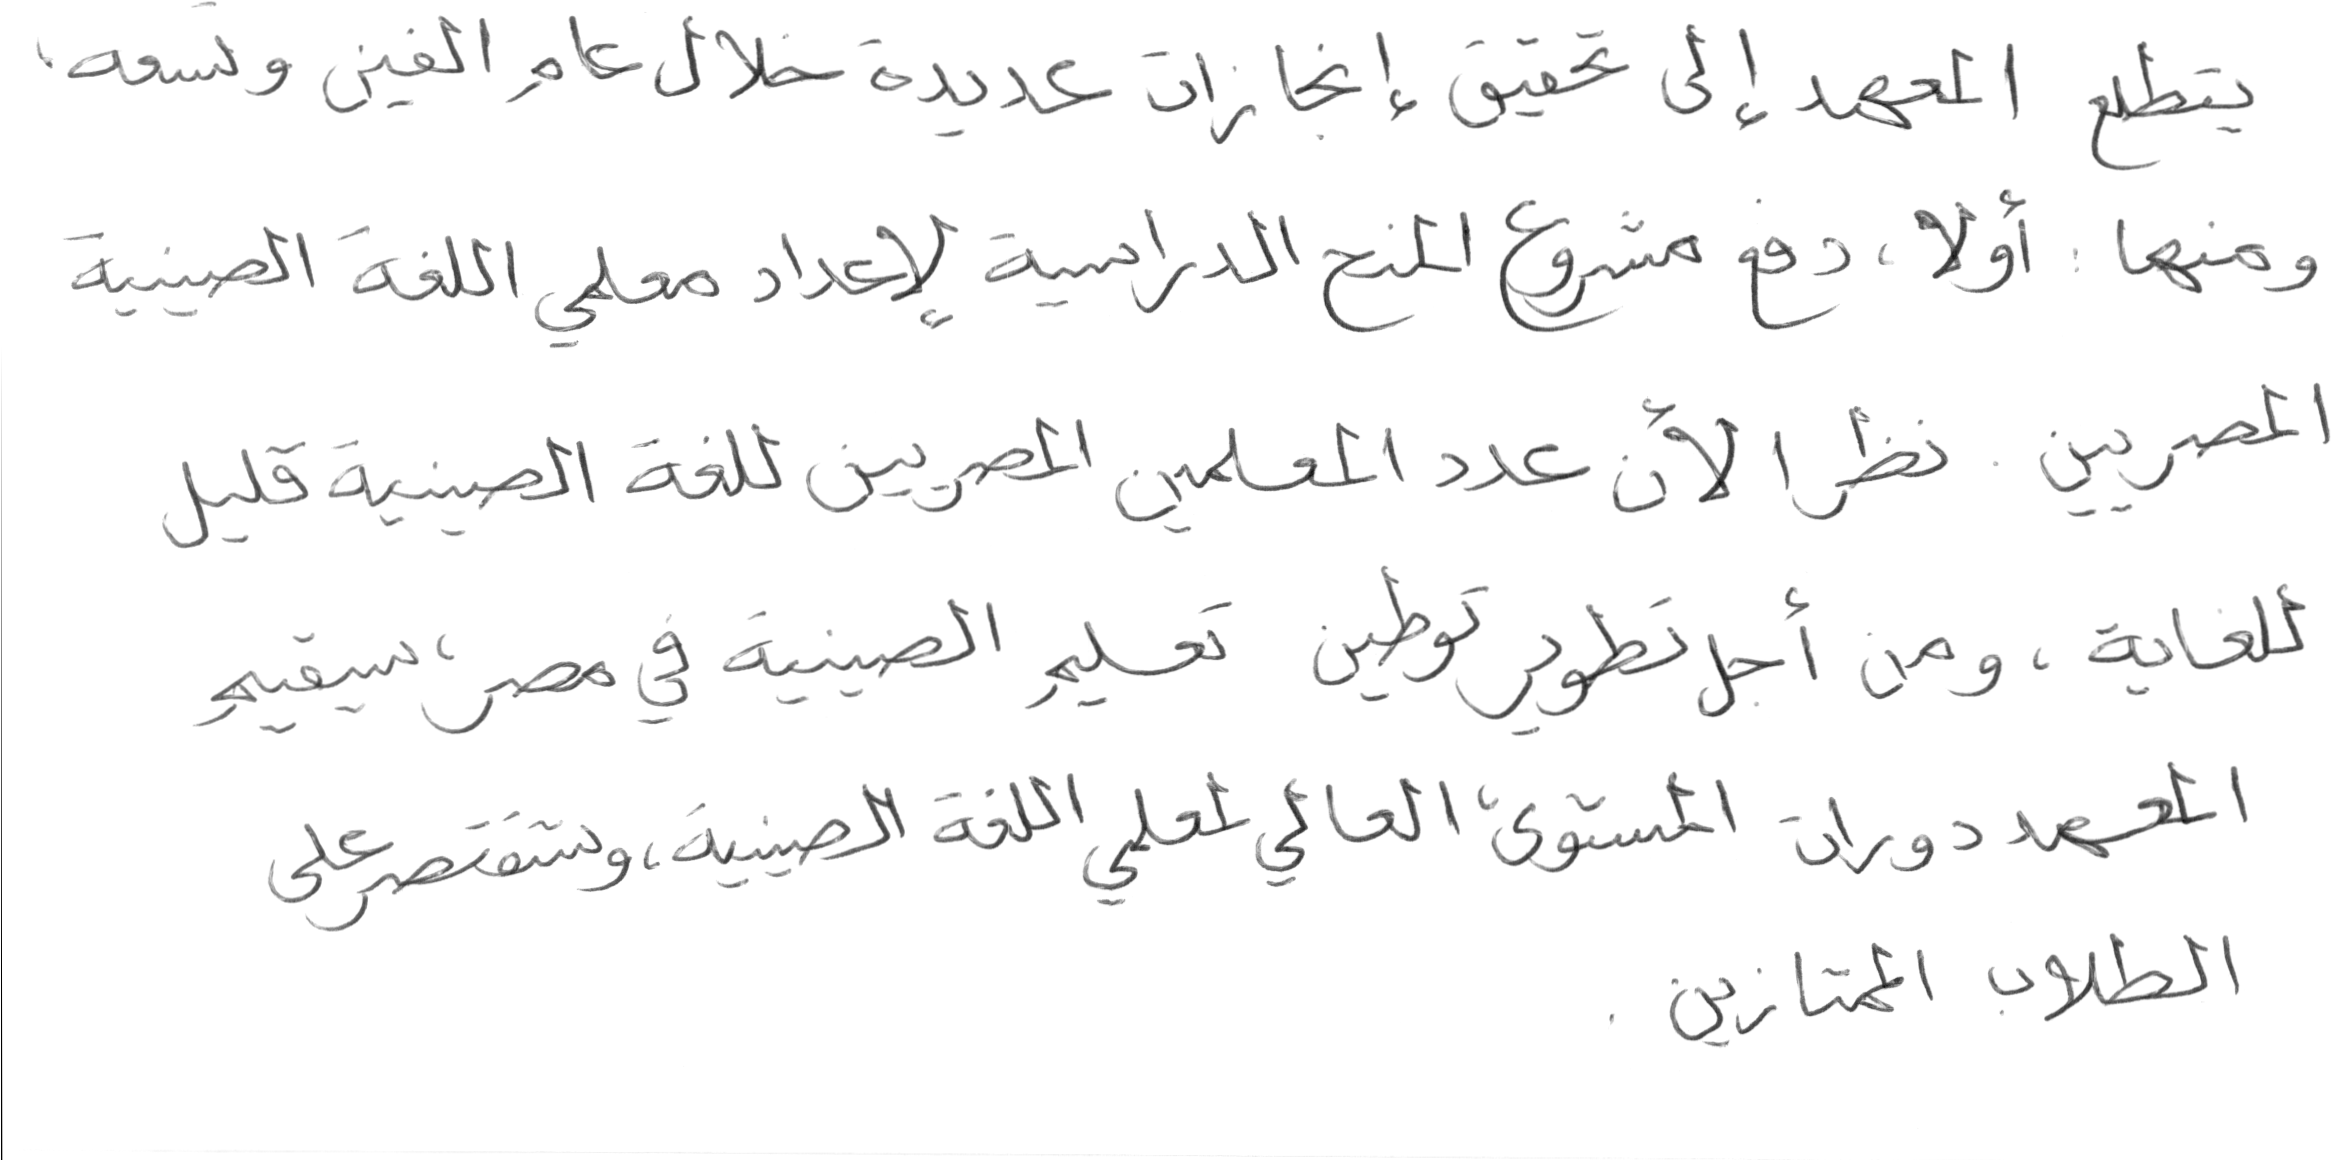 يتطلع المعهد إلى تحقيق إنجازات عديدة خلال عام الفين وتسعه،
ومنها: أولا، دفع مشروع المنح الدراسية لإعداد معلمي اللغة الصينية
المصريين. نظرا لأن عدد المعلمين المصريين للغة الصينية قليل
للغاية، ومن أجل تطوير توطين تعليم الصينية في مصر، سيقيم
المعهد دورات المستوى العالي لمعلمي اللغة الصينية، وستقتصر على
الطلاب الممتازين.